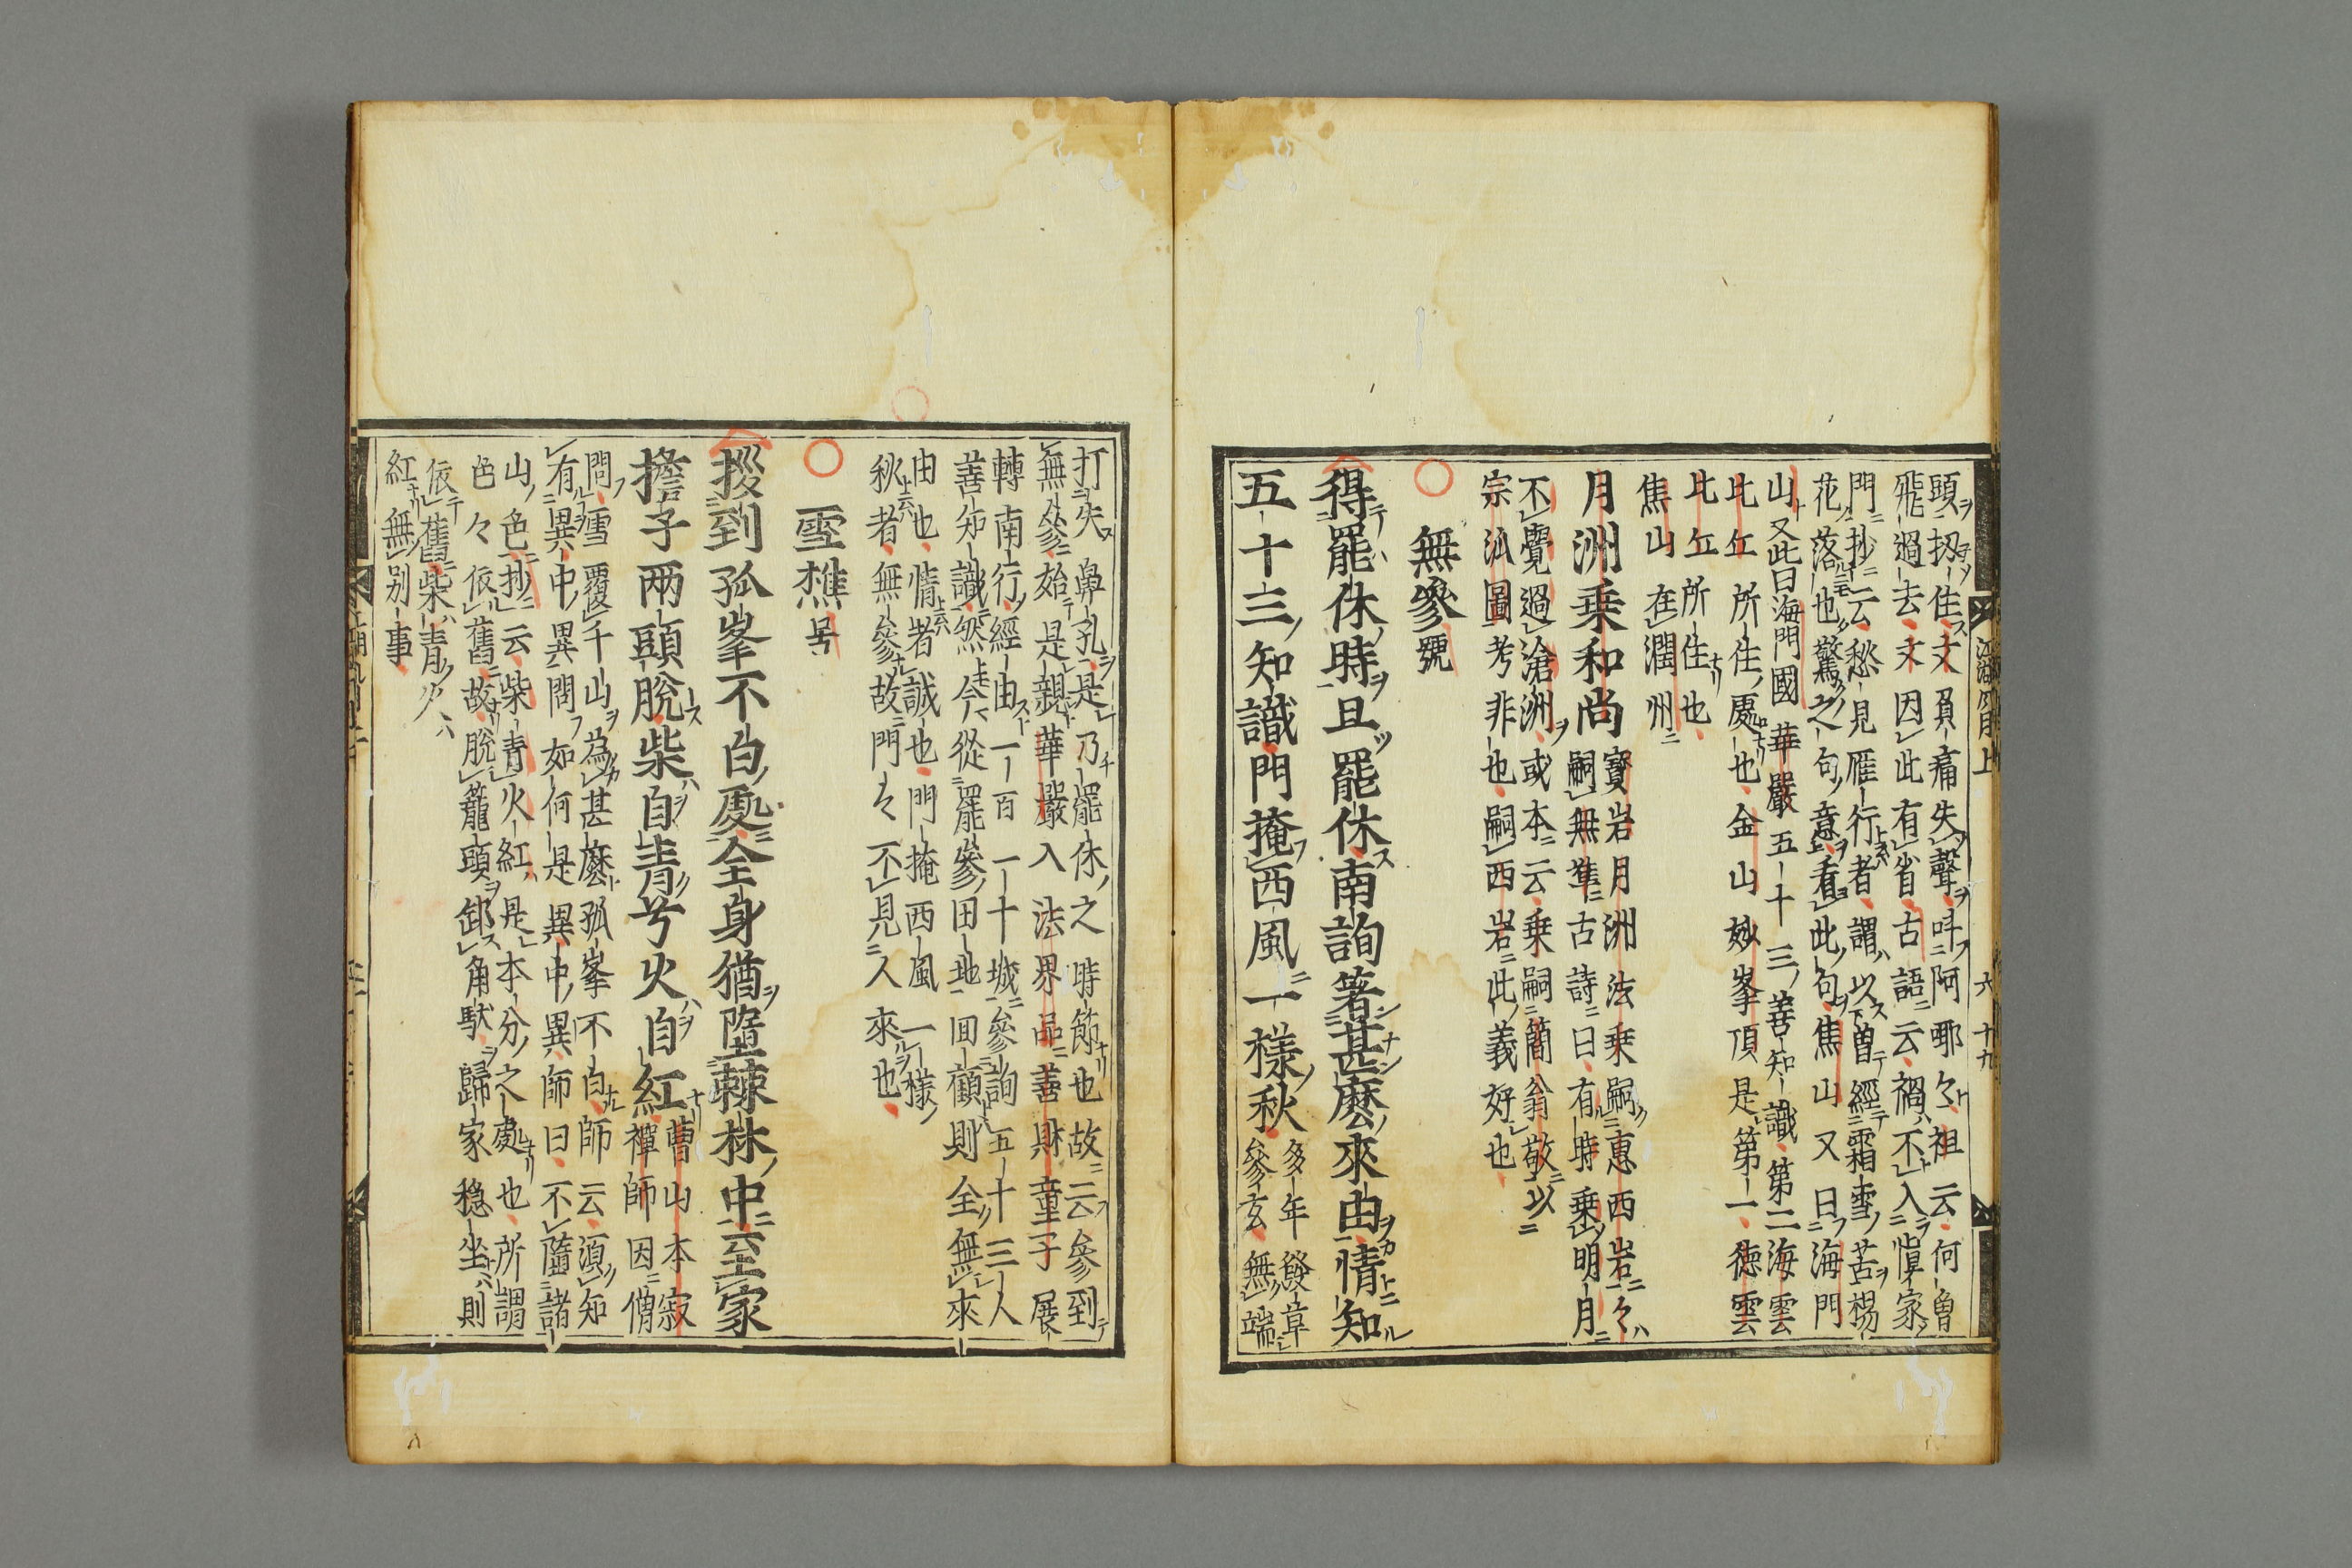 頭扨住文負痛失聲呌阿哪々祖云何曽
飛過去文因此有省古語云禍不入愼家
門抄云愁見雁行者謂以曽經霜雪苦楊
花落也驚之句意看此句焦山又曰海門
山又此曰海門國華嚴五十三善知識第二海雲
比丘所住處也金山妙峯頂是第一德雲
比丘所住也
焦山在潤州
月洲乗和尚
寳岩月洲法乗嗣惠西岩々
嗣無準古詩曰有時乗明月
不覺過滄洲或本云乗嗣簡翁敬以
宗派圖考非也嗣西岩此義好也
無參號
得罷休時且罷休南詢著甚麽來由情知
五十三知識門掩西風一樣秋
多年發章
參玄無端
打失鼻孔是乃罷休之時節也故云參到
無參始是親華嚴入法界品善財童子展
轉南行經由一百一十城參詢五十三人
善知識然今從罷參田地回顧則全無來
由也情者誠也門掩西風一樣
秋者無參故門々不見人來也
雪樵号
拶到孤峯不白處全身猶墮棘林中至家
擔子兩頭脫柴自青兮火自紅
曹山本寂
禪師因僧
問雪覆千山為甚麽孤峯不白師云須知
有異中異問如何是異中異師曰不墮諸
山色抄云柴青火紅是本分之處也所謂
色々依舊故脫籠頭卸角馱歸家穏坐則
依舊柴青火
紅無别事
江湖月上
六十九